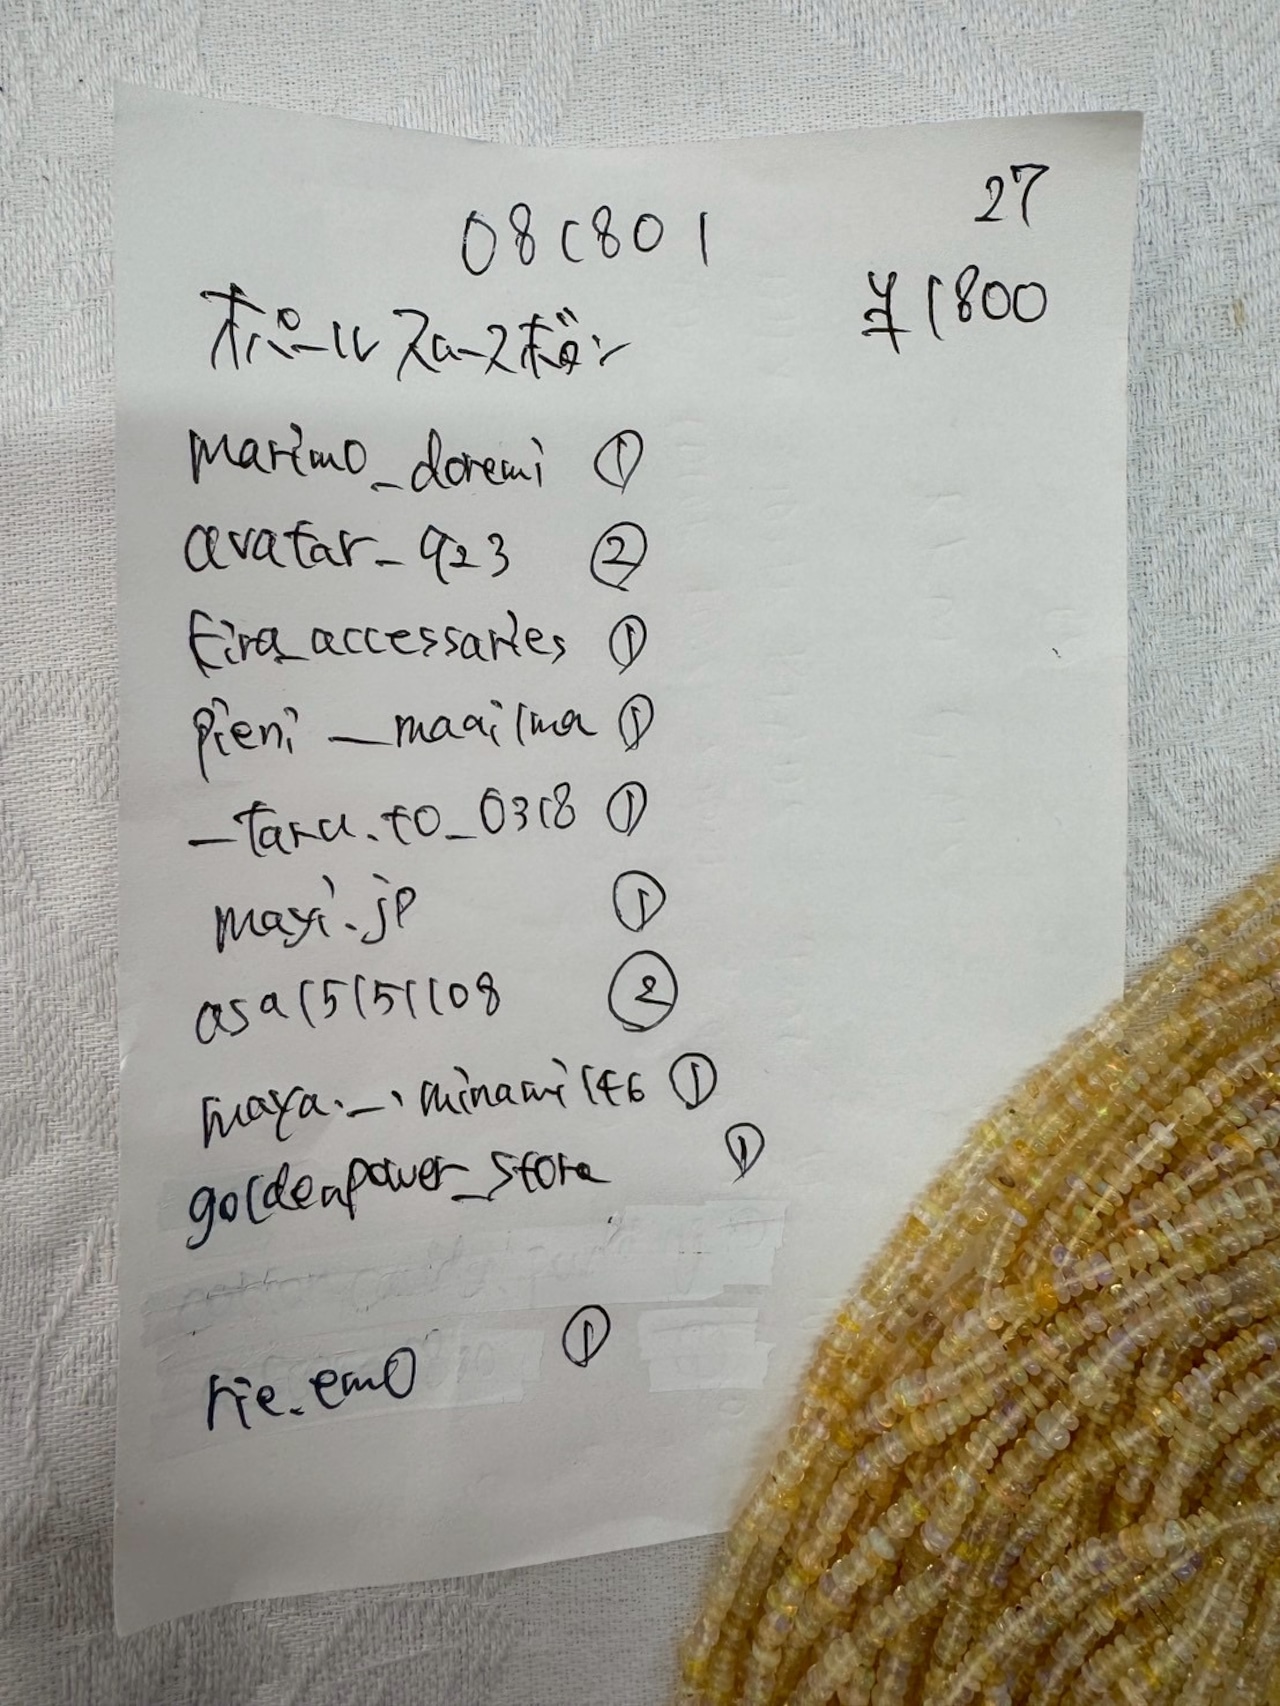 27
081801
¥1800
オパールスムースボタン
marimo_doremi ①
avatar_923 ②
tira_accessaries ①
pieni_maailma ①
_taru.to_0318 ①
mayi.jp ①
asa15151108 ②
maya._.minami146 ①
goldenpower_store ①
rie_emo ①